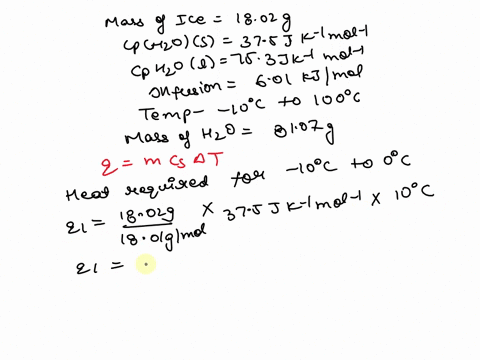 Mass of Ice = 18.02 g
Cp(H2O)(s) = 37.5 J K-1 mol-1
Cp H2O(l) = 75.3 JK-1 mol-1
ΔHfusion = 6.01 kJ/mol
Temp- -10°C to 100°C
Mass of H2O = 81.07g
q = m Cs ΔT
Heat required for -10°C to 0°C
q1 = 18.02g / 18.01g/mol × 37.5 J K-1 mol-1 × 10°C
q1 =